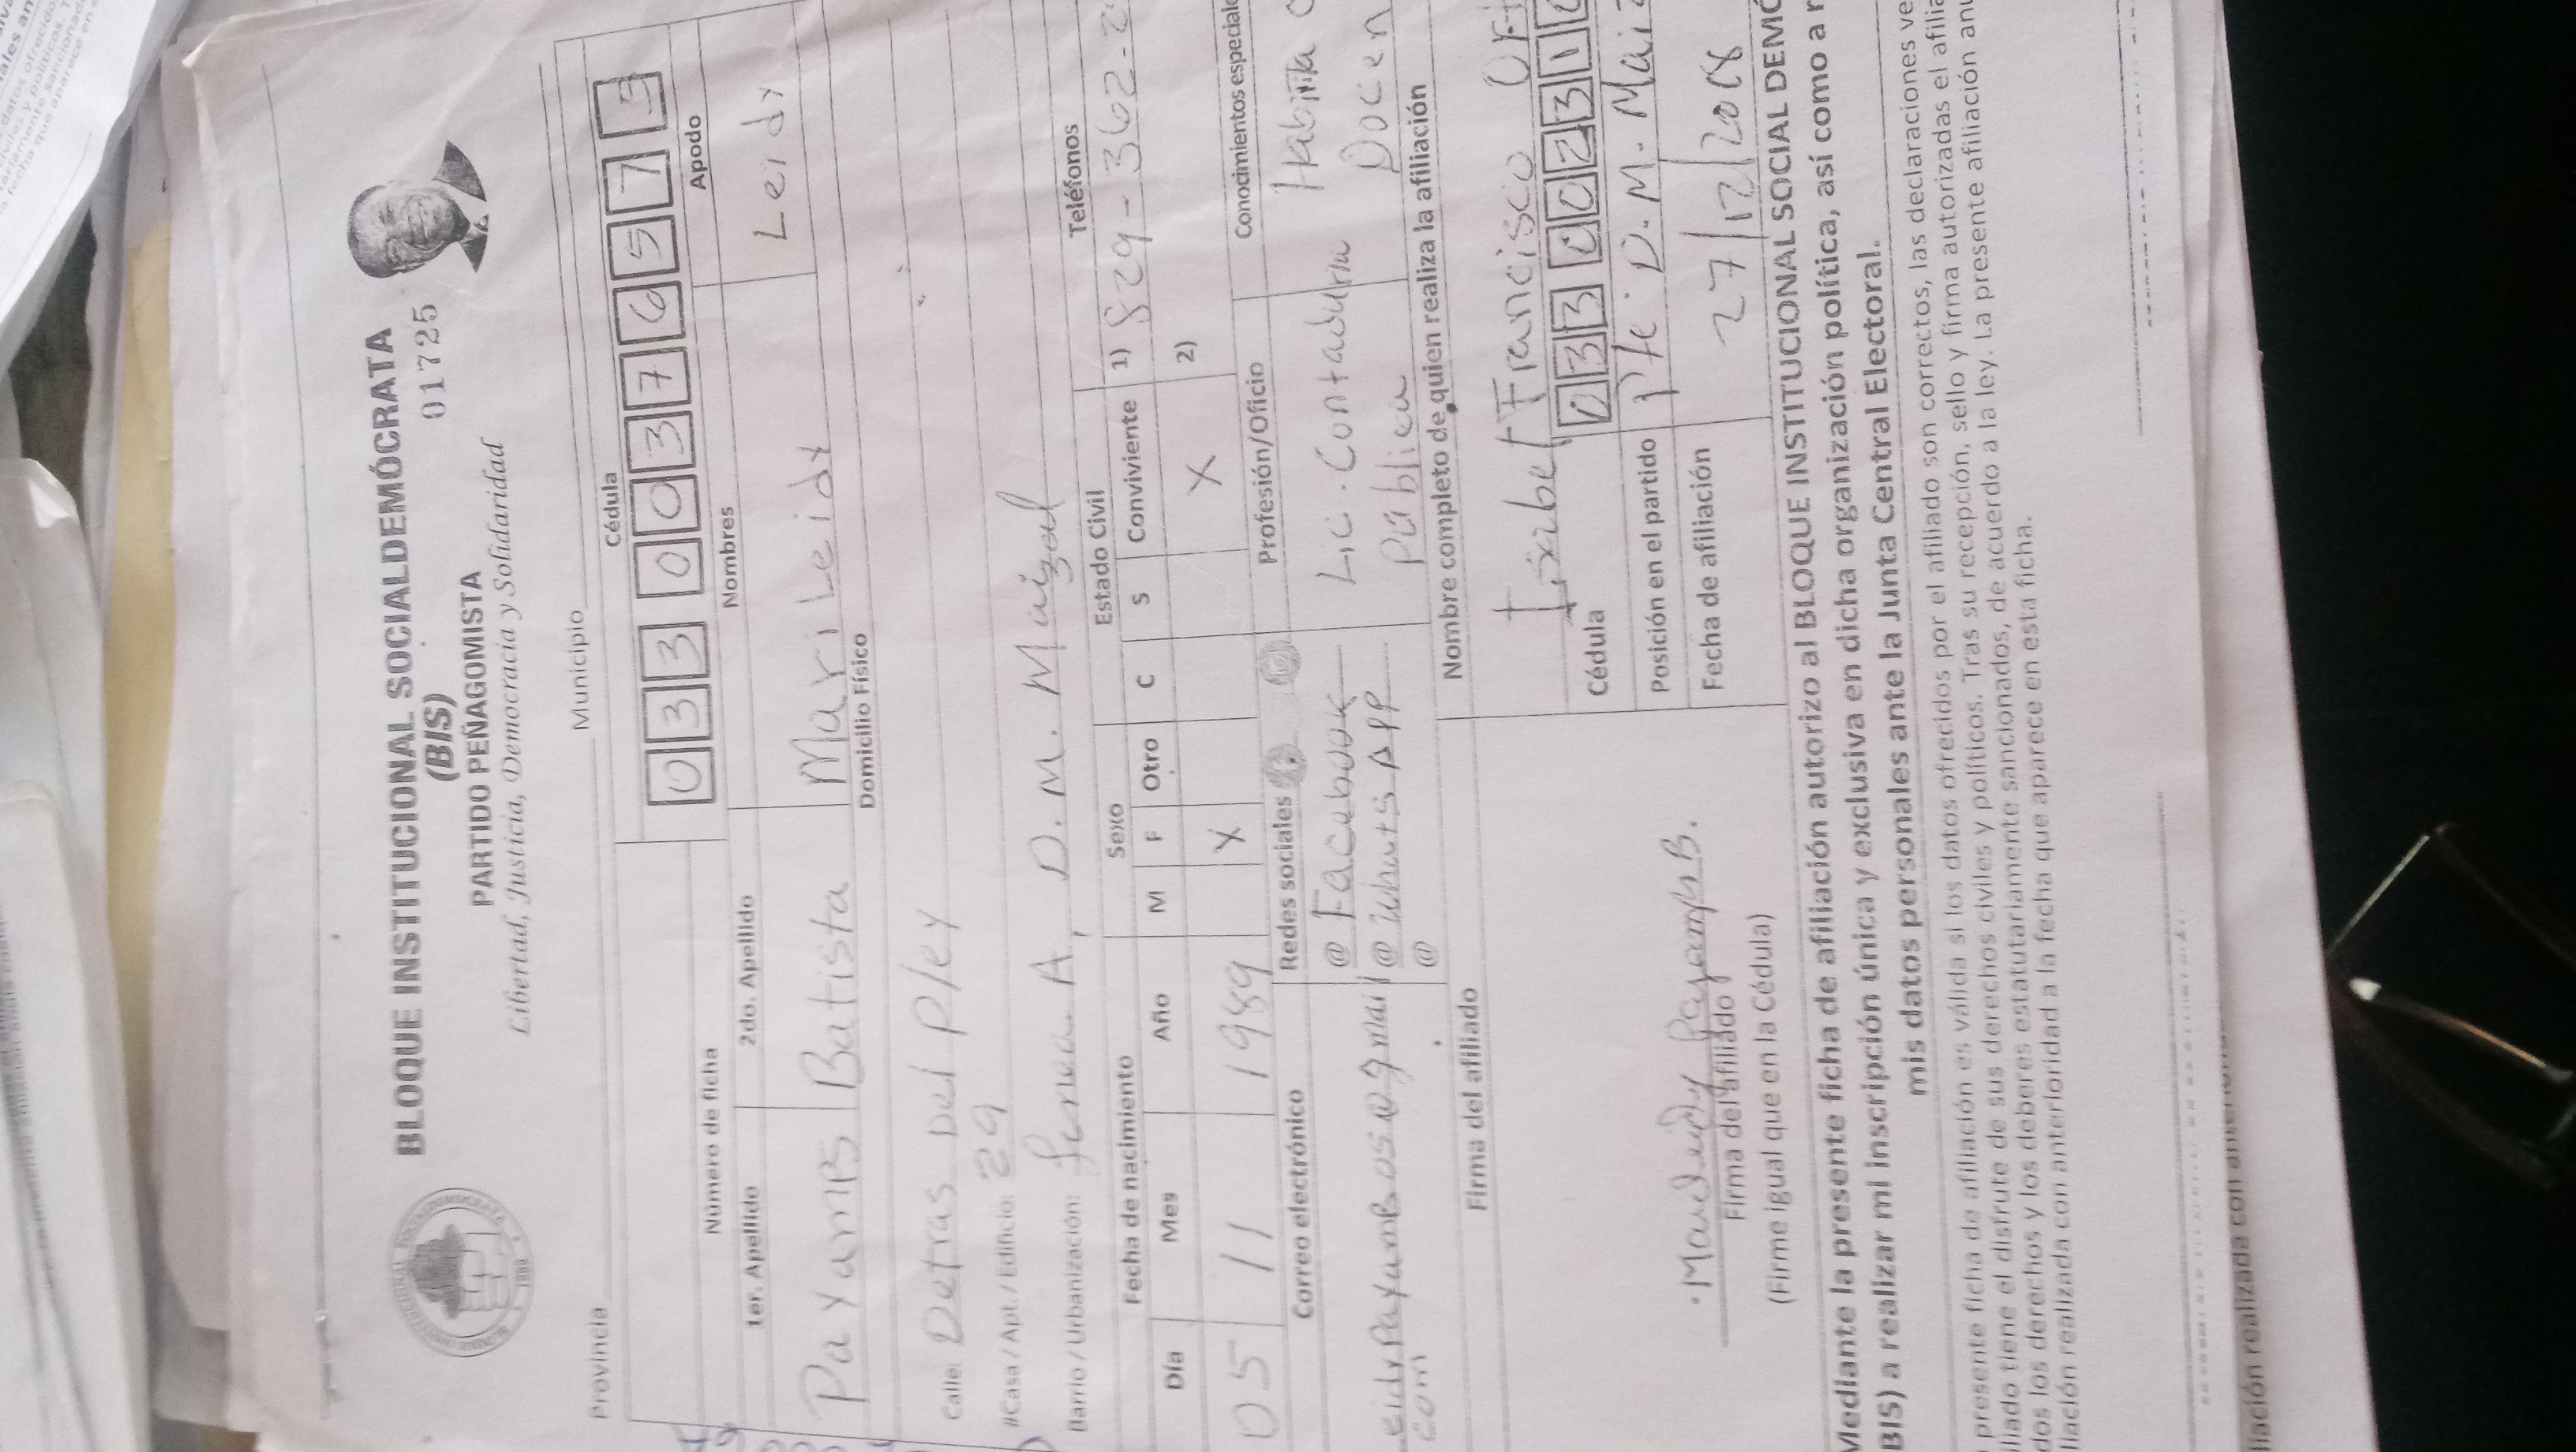 BLOQUE INSTITUCIONAL SOCIALDEMÓCRATA
(BIS)
01725
PARTIDO PEÑAGOMISTA
Libertad, Justicia, Democracia y Solidaridad
Provincia Municipio
Cédula
033 0037657
Número de ficha
1er. Apellido 2do. Apellido Nombres Apodo
Payamps Batista Mari Leidy Leidy
Domicilio Físico
Calle: Detras Del Pley
#Casa / Apt. / Edificio: 29
Barrio / Urbanización: A, D. M. Maizal
Fecha de nacimiento Sexo Estado Civil Teléfonos
Día Mes Año M F Otro C S Conviviente 1) 829-362-2
05 11 1989 X X 2)
Correo electrónico Redes sociales Profesión/Oficio Conocimientos especiale
eidyPayamps05@gmail @ Facebook Lic. Contaduria
com @ WhatsApp Publica Docen
@
Firma del afiliado Nombre completo de quien realiza la afiliación
Francisco
Cédula 033 002310
Posición en el partido Pte. D. M. Maiz
Fecha de afiliación 27/12/2018
Marileidy Payamps B.
Firma del afiliado
(Firme igual que en la Cédula)
Mediante la presente ficha de afiliación autorizo al BLOQUE INSTITUCIONAL SOCIAL DEMÓ
BIS) a realizar mi inscripción única y exclusiva en dicha organización política, así como a r
mis datos personales ante la Junta Central Electoral.
presente ficha de afiliación es válida si los datos ofrecidos por el afiliado son correctos, las declaraciones ve
iliado tiene el disfrute de sus derechos civiles y políticos. Tras su recepción, sello y firma autorizadas el afilia
dos los derechos y los deberes estatutariamente sancionados, de acuerdo a la ley. La presente afiliación anu
liación realizada con anterioridad a la fecha que aparece en esta ficha.
liación realizada con